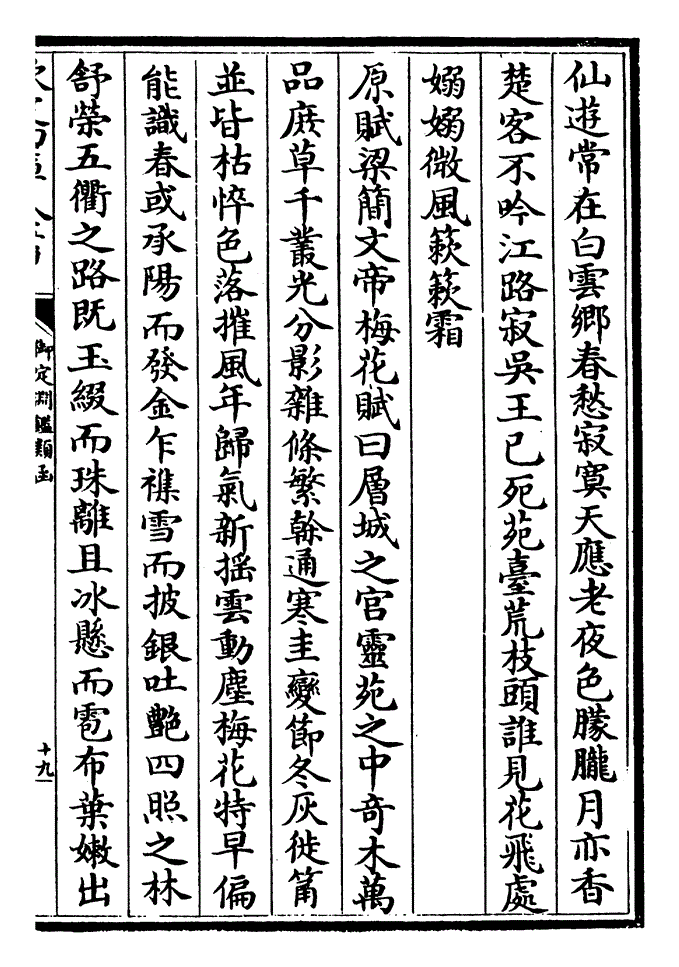 仙遊常在白雲鄉春愁寂寞天應老夜色朦朧月亦香
楚客不吟江路寂吳王已死苑臺荒枝頭誰見花飛處
嫋嫋微風簌簌霜
原賦梁簡文帝梅花賦曰層城之宫靈苑之中奇木萬
品庶草千叢光分影雜條繁榦通寒圭變節冬灰徙筩
並皆枯悴色落摧風年歸氣新揺雲動塵梅花特早偏
能識春或承陽而發金乍襍雪而披銀吐艷四照之林
舒榮五衢之路既玉綴而珠離且冰懸而雹布葉嫩出
御定淵鑑類函
十九